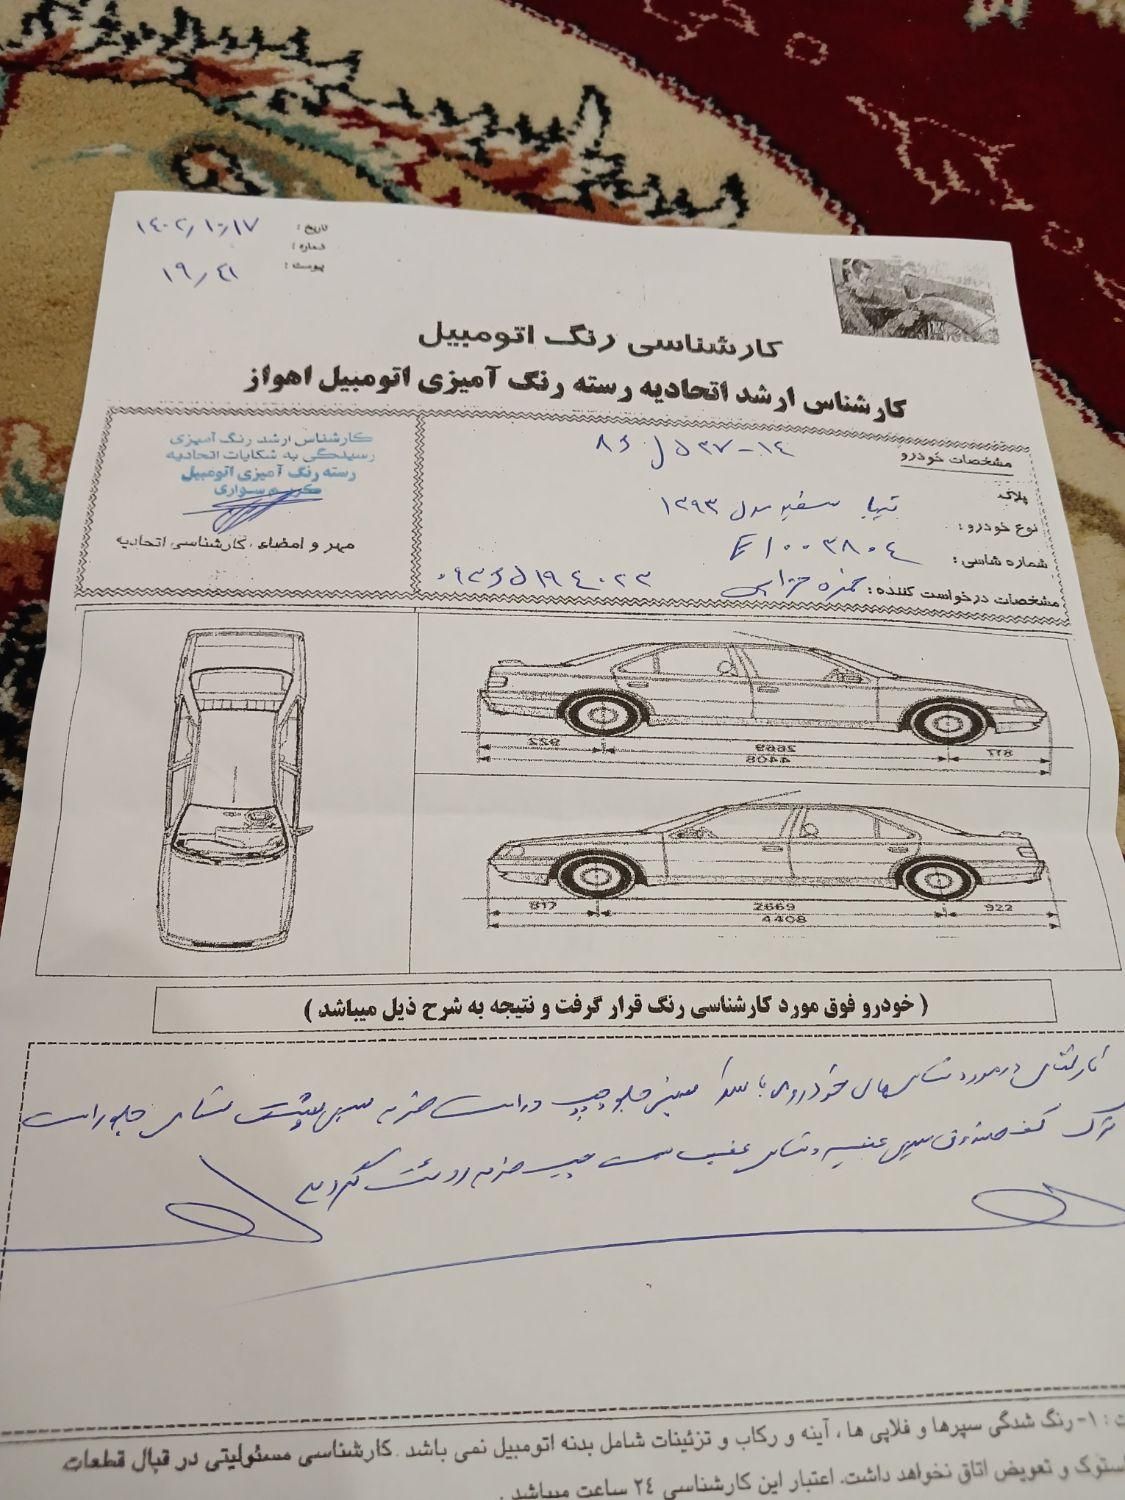 تاریخ : ۱۴۰۲٫۱۰٫۱۷
شماره :
پیوست : ۱۹٫۴۱
کارشناسی رنگ اتومبیل
کارشناس ارشد اتحادیه رسته رنگ آمیزی اتومبیل اهواز
کارشناس ارشد رنگ آمیزی
رسیدگی به شکایات اتحادیه
رسته رنگ آمیزی اتومبیل
کریم سواری
مهر و امضاء ، کارشناسی اتحادیه
مشخصات خودرو
پلاک ۱۴-۸۶ل۵۳۷
نوع خودرو : تیبا سفید مدل ۱۳۹۳
شماره شاسی : E۱۰۰۳۸۰۴
مشخصات درخواست کننده : حمزه ۰۹۳۶۵۱۹۴۰۲۳
922
2669
817
4408
817
2669
922
4408
( خودرو فوق مورد کارشناسی رنگ قرار گرفت و نتیجه به شرح ذیل میباشد )
در مورد خودروی جلو چپ و راست ضربه سینی پشت جلو راست
کف صندوق سینی عقب و عقب سمت چپ ضربه رویت گردید
ت : ۱- رنگ شدگی سپرها و فلاپی ها ، آینه و رکاب و تزئینات شامل بدنه اتومبیل نمی باشد . کارشناسی مسئولیتی در قبال قطعات
استوک و تعویض اتاق نخواهد داشت. اعتبار این کارشناسی ۲۴ ساعت میباشد .